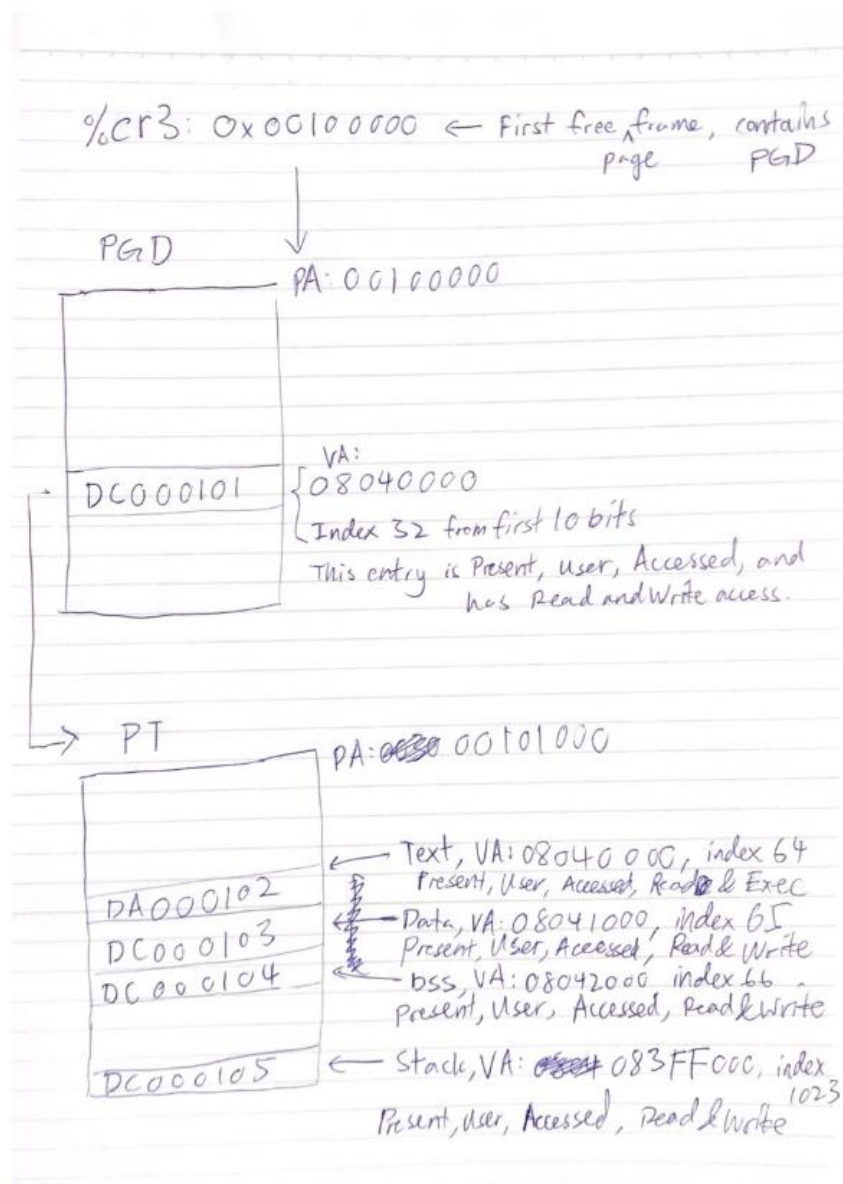 %cr3: 0x00100000 ← First free page frame, contains PGD
PGD
PA: 00100000
VA:
DC000101 08040000
Index 32 from first 10 bits
This entry is Present, User, Accessed, and
has Read and Write access.
PT
PA: 00101000
Text, VA: 08040000, index 64
DA000102 Present, User, Accessed, Read & Exec
DC000103 Data, VA: 08041000, index 65
Present, User, Accessed, Read & Write
DC000104 bss, VA: 08042000 index 66.
Present, User, Accessed, Read & Write
DC000105 Stack, VA: 083FF000, index 1023
Present, User, Accessed, Read & Write